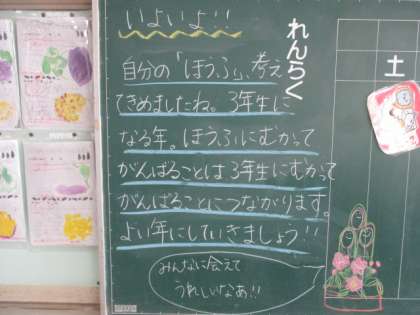 いよいよ!!
自分の「ほうふ」、考え
てきめましたね。3年生に
なる年。ほうふにむかって
がんばることは3年生にむかって
がんばることにつながります。
よい年にしていきましょう!!
みんなに会えて
うれしいなあ!!
れんらく
土